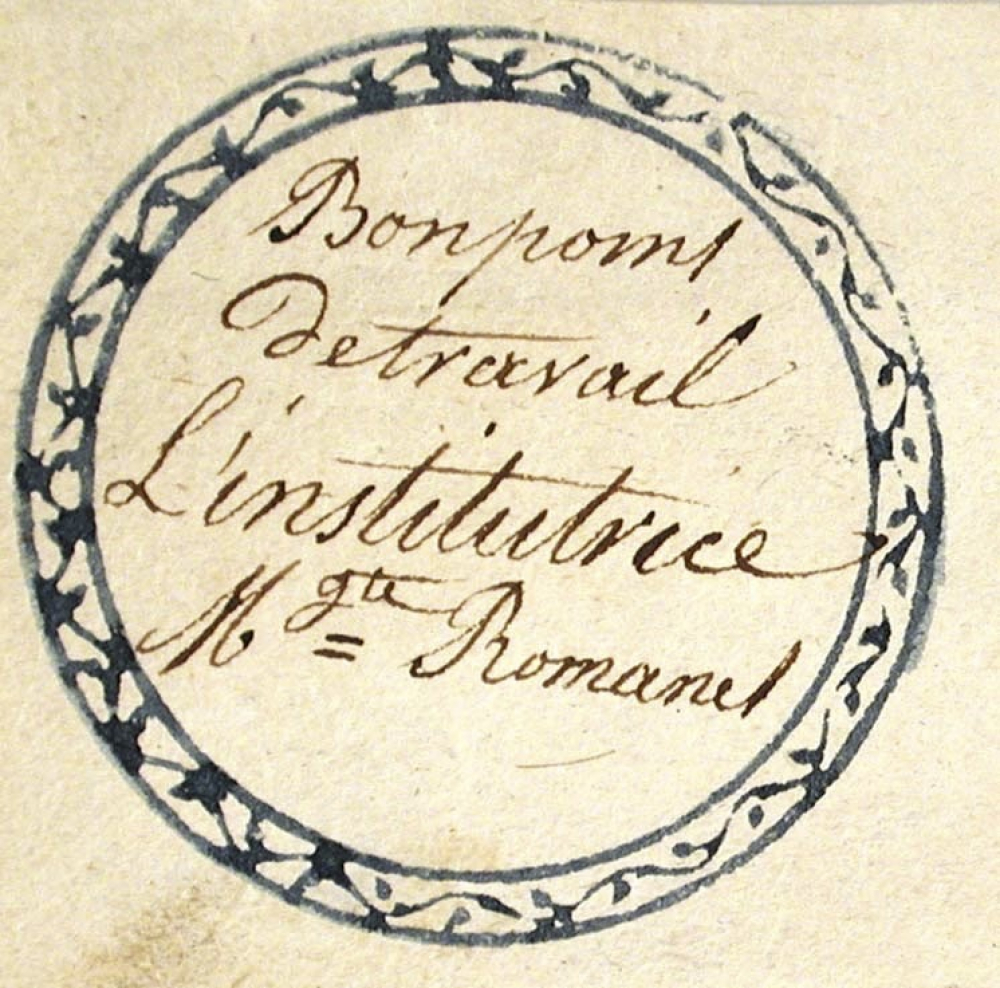 Bonpoint
de travail
L'institutrice
Mgte Romanet